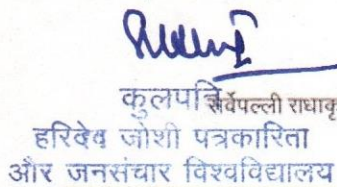 कुलपति
सर्वपल्ली राधाकृ
हरिदेव जोशी पत्रकारिता
और जनसंचार विश्वविद्यालय